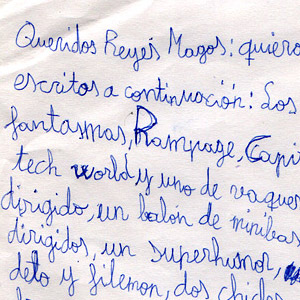 Queridos Reyes Magos: quiero
escritos a continuación: Los
fantasmas, Rampage, Capi
tech world y uno de vaquer
dirigido, un balón de minibas
dirigidos, un superhumor,
delo y filemon, dos chicles